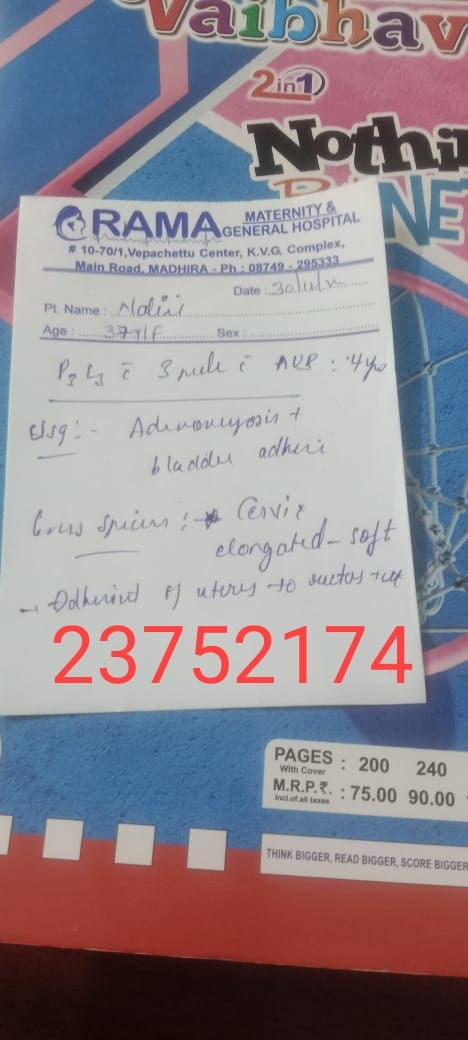 Vaibhav
2in1
Nothi
NE
RAMA MATERNITY & GENERAL HOSPITAL
# 10-70/1, Vepachettu Center, K.V.G. Complex,
Main Road, MADHIRA - Ph : 08749 - 295333
Date : 30/12/
Pt. Name : Nalini
Age : 37y/F Sex :
P3 L3 c̄ 3 c̄ AUB : 4
Usg :- Adenomyosis +
bladder
: - Cervix
elongated - soft
- of uterus to
23752174
PAGES : 200 240
With Cover
M.R.P.₹. : 75.00 90.00
Incl.of.all taxes
THINK BIGGER, READ BIGGER, SCORE BIGGER